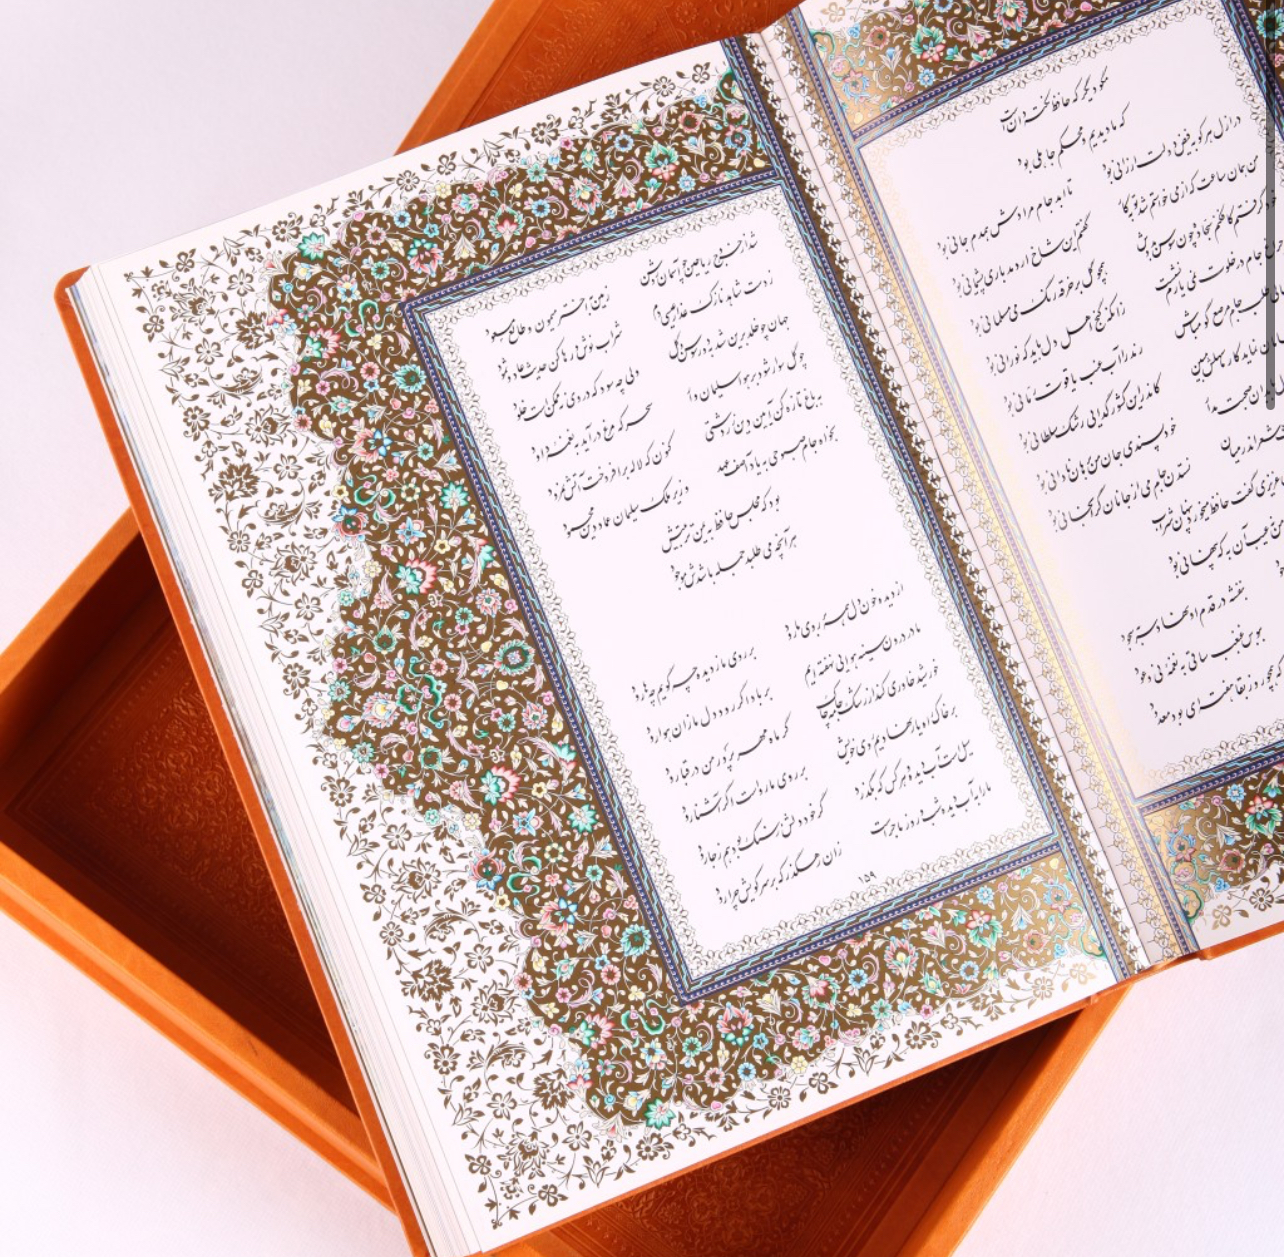 مگو دیگر که حافظ نکته دان است
که ما دیدیم و محکم جاهلی بود
در ازل هر کو به فیض دولت ارزانی بود تا ابد جام مرادش همدم جانی بود
من همان ساعت که از می خواستم شد توبه کار گفتم این شاخ ار دهد باری پشیمانی بود
گرفتم کافکنم سجاده چون سوسن به دوش همچو گل بر خرقه رنگ می مسلمانی بود
جام در خلوت نمی یارم نشست زانکه کنج اهل دل باید که نورانی بود
طلب جام مرصع گو مباش رند را آب عنب یاقوت رمانی بود
نماید کار ما سهلش مبین کاندرین کشور گدایی رشک سلطانی بود
صحبت مدار خود پسندی جان من برهان نادانی بود
شعر اندر میان نستدن جام می از جانان گرانجانی بود
عزیزی گفت حافظ میخورد پنهان شراب
عیب آن به که پنهانی بود
بنفشه در قدم او نهاد سر به سجود
ببوس غبغب ساقی به نغمه نی و عود
همچو روز بقا هفته ای بود معدود
شد از خروج ریاحین چو آسمان روشن زمین به اختر میمون و طالع مسعود
ز دست شاهد نازک عذار عیسی دم شراب نوش و رها کن حدیث عاد و ثمود
جهان چو خلد برین شد به دور سوسن و گل ولی چه سود که در وی نه ممکن است خلود
چو گل سوار شود بر هوا سلیمان وار سحر که مرغ در آید به نغمه داود
به باغ تازه کن آیین دین زردشتی کنون که لاله برافروخت آتش نمرود
بخواه جام صبوحی به یاد آصف عهد وزیر ملک سلیمان عماد دین محمود
بود که مجلس حافظ به یمن تربیتش
هر آنچه می طلبد جمله باشدش موجود
از دیده خون دل همه بر روی ما رود بر روی ما ز دیده چه گویم چه ها رود
ما در درون سینه هوایی نهفته ایم بر باد اگر رود دل ما زان هوا رود
خورشید خاوری کند از رشک جامه چاک گر ماه مهر پرور من در قبا رود
بر خاک راه یار نهادیم روی خویش بر روی ما رواست اگر آشنا رود
سیل است آب دیده و هر کس که بگذرد گر خود دلش ز سنگ بود هم ز جا رود
ما را به آب دیده شب و روز ماجراست زان رهگذر که بر سر کویش چرا رود
۱۵۹